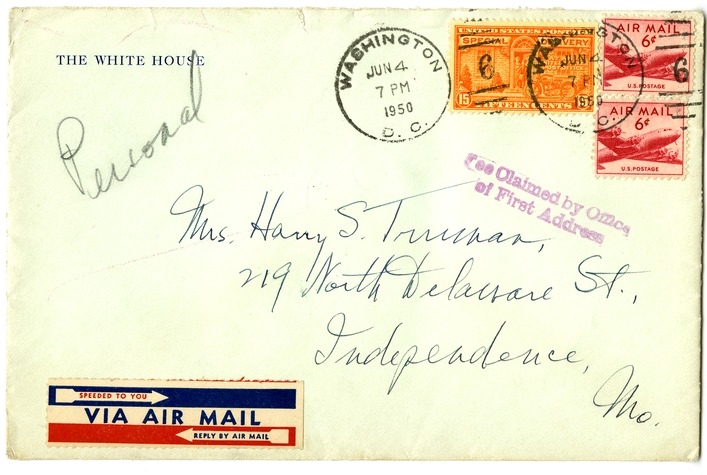 THE WHITE HOUSE
Personal
WASHINGTON
JUN 4
7 PM
1950
D. C.
UNITED STATES POSTAGE
SPECIAL DELIVERY
6
15
FIFTEEN CENTS
WASHINGTON
JUN 4
7 PM
1950
D. C.
AIR MAIL
6¢
6
U.S. POSTAGE
AIR MAIL
6¢
U.S. POSTAGE
Fee Claimed by Office
of First Address
Mrs. Harry S. Truman,
219 North Delaware St.,
Independence,
Mo.
SPEEDED TO YOU
VIA AIR MAIL
REPLY BY AIR MAIL